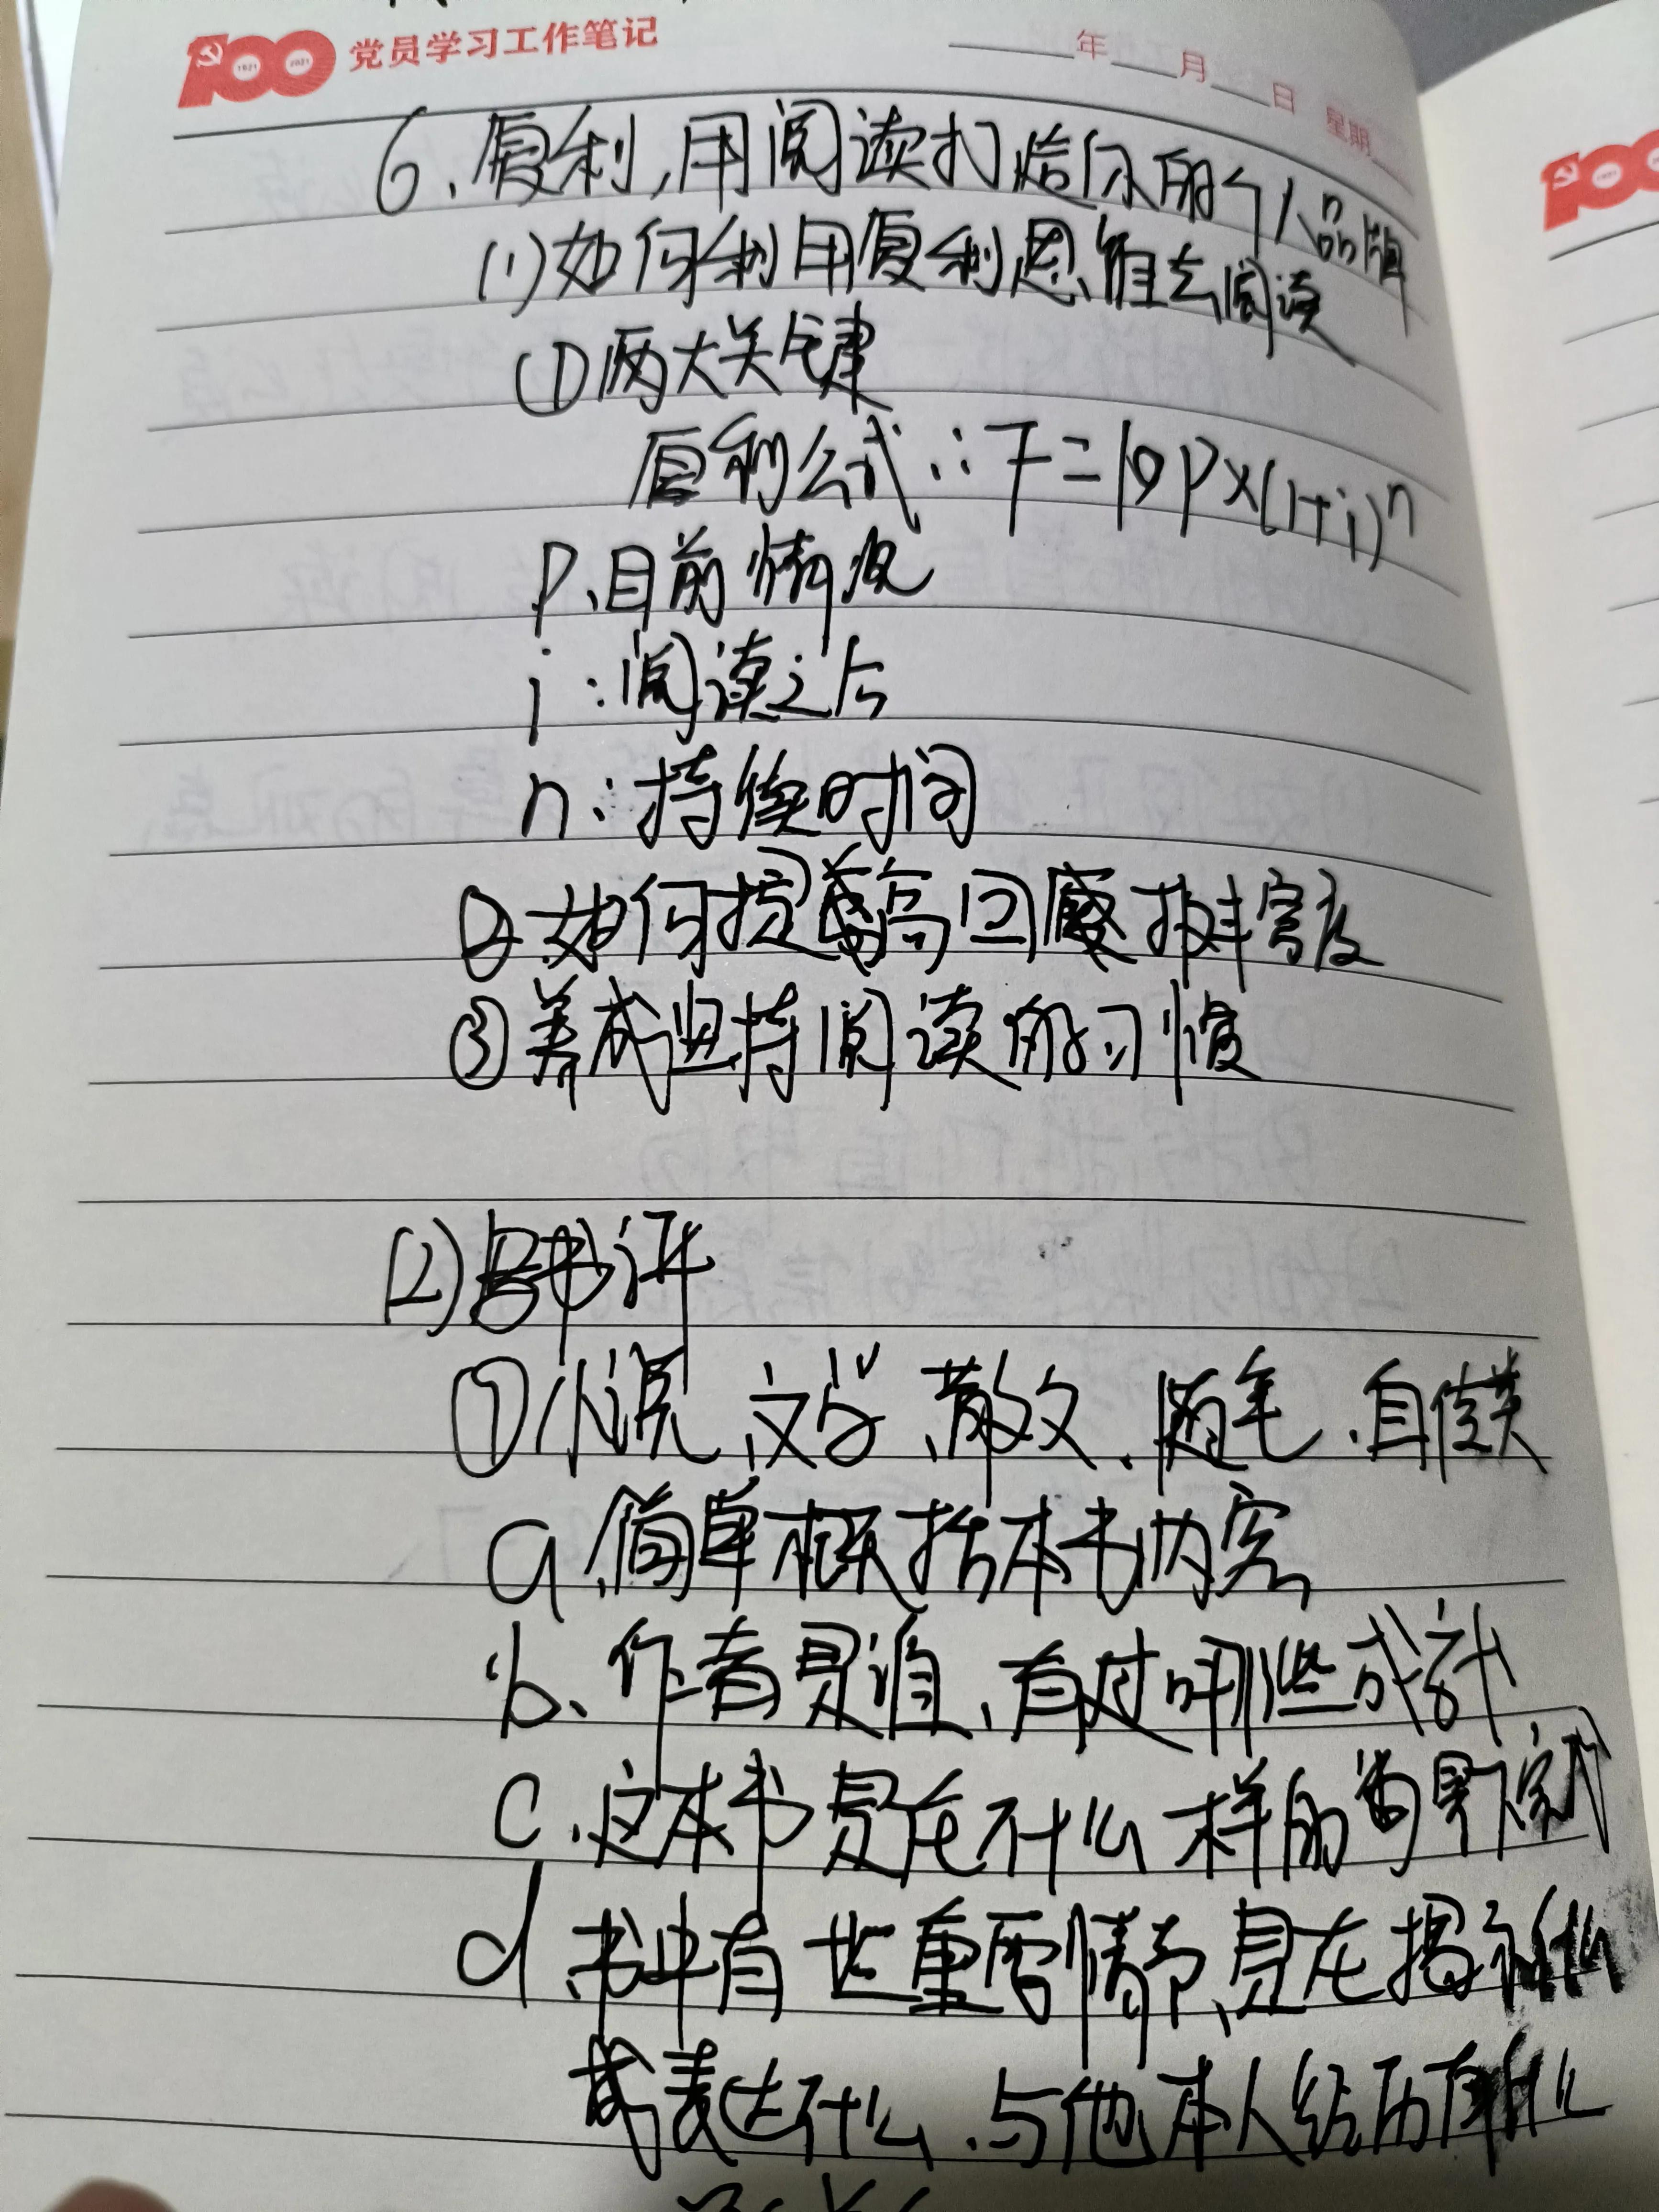 100 党员学习工作笔记
1921 2021
年 月 日 星期
6、复利,用阅读打造你的个人品牌
(1)如何利用复利思维去阅读
①两大关键
复利公式:F=P×(1+i)ⁿ
P、目前情况
i:阅读之后
n:持续时间
②如何提高回报丰富度
③养成坚持阅读的习惯
(2)书评
①小说、文学、散文、随笔、自传类
a、简单概括本书内容
b、作者是谁、有过哪些成就
c、这本书是在什么样的背景下
d、书中有些重要情节、是在揭示什么
或表达什么、与他本人经历有什么